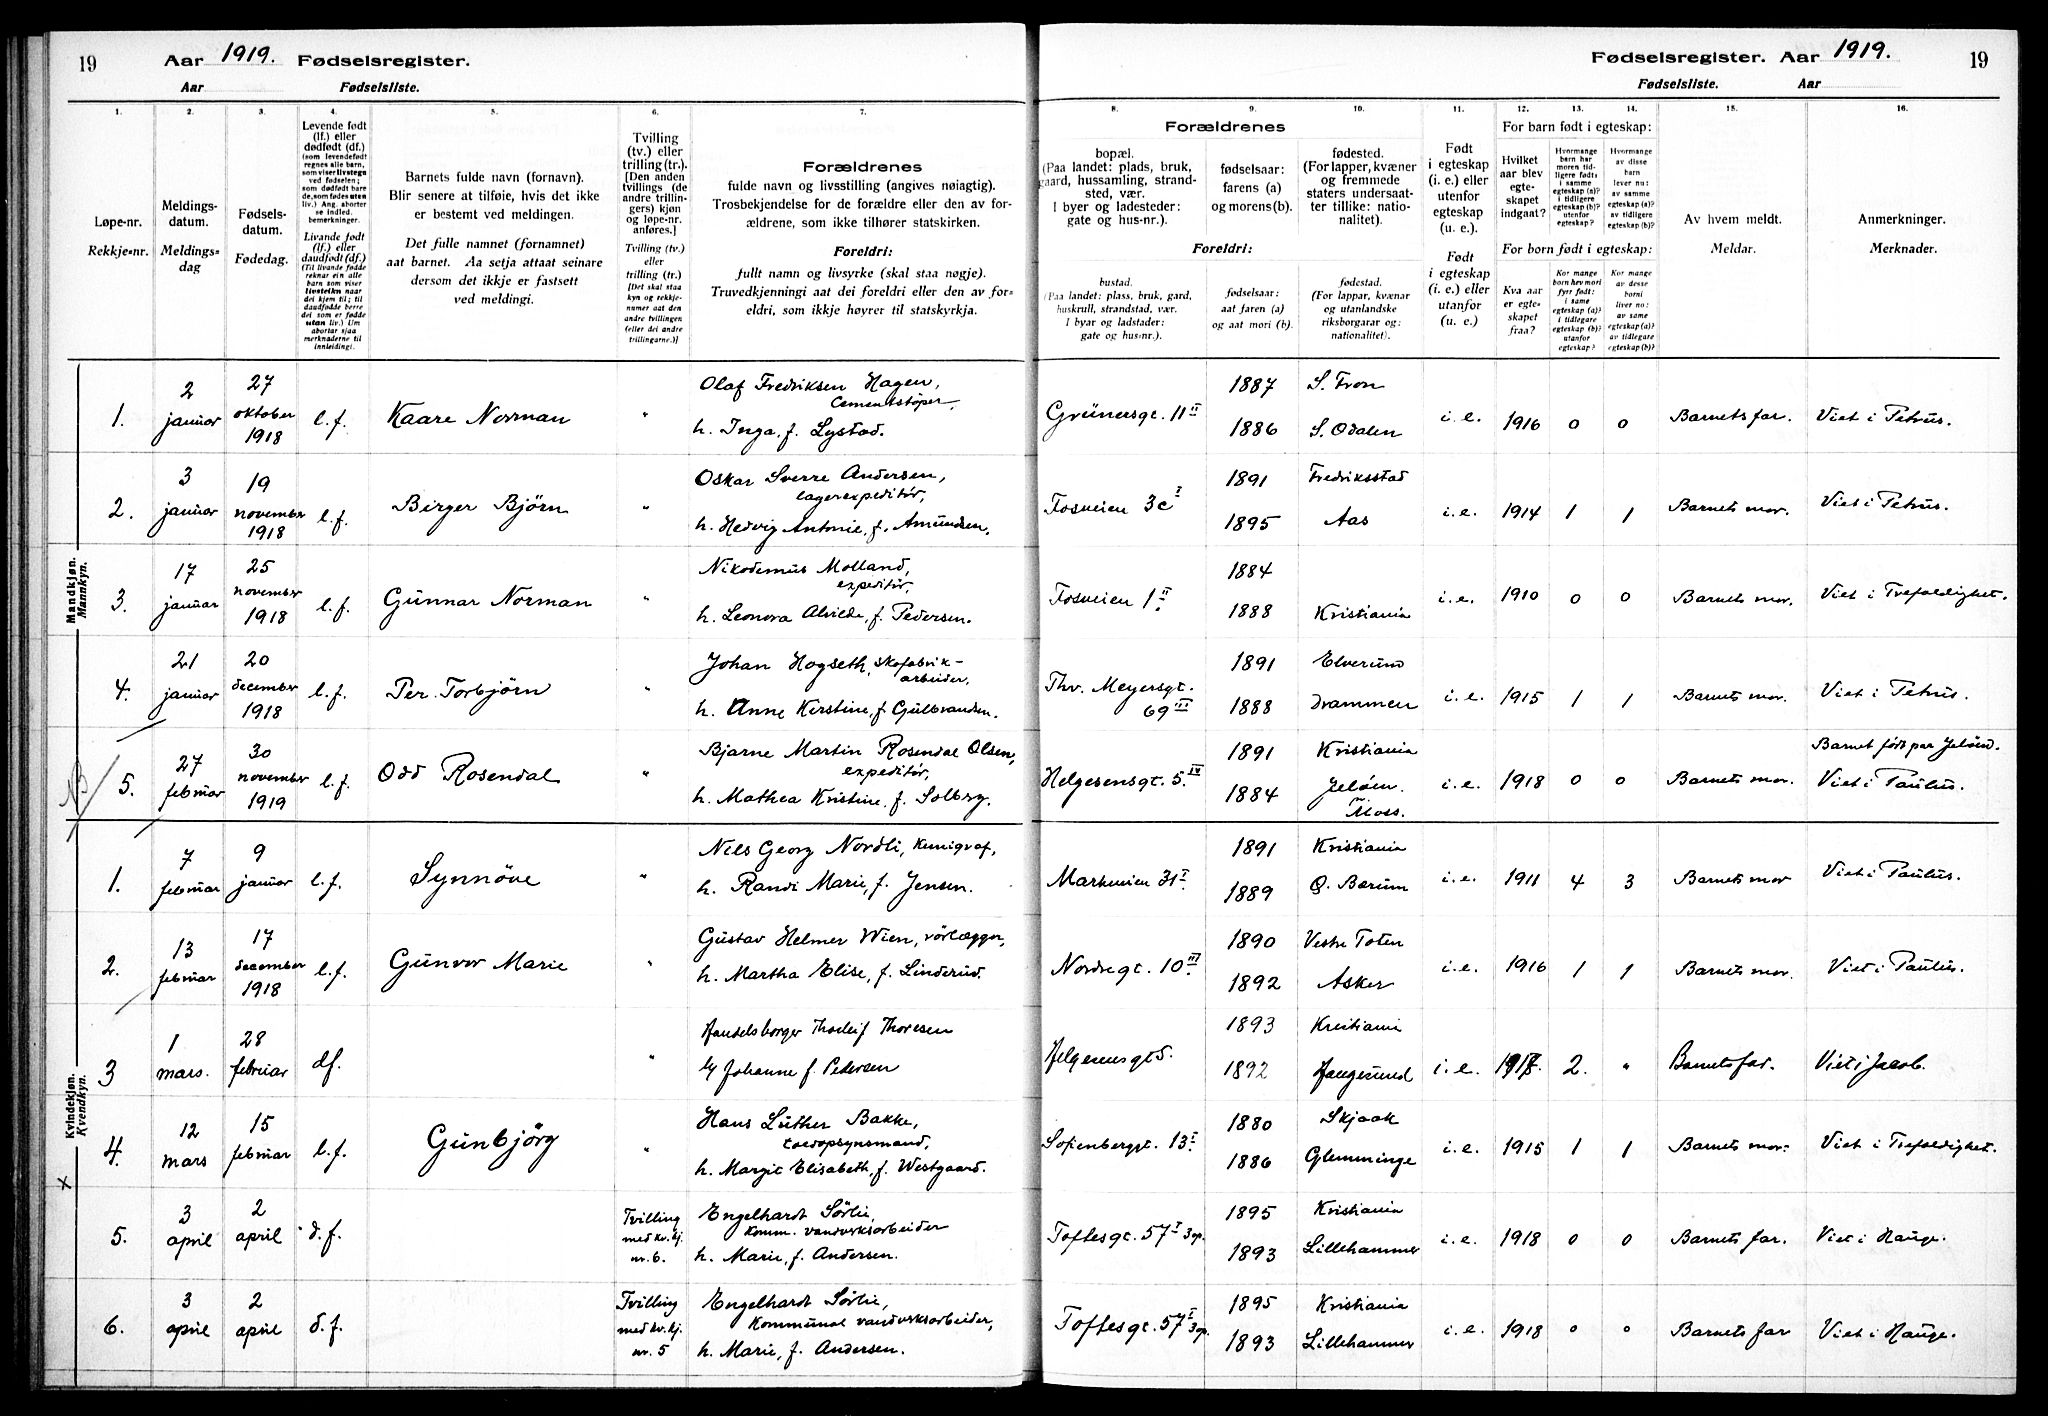 19
Aar 1919. Fødselsregister.
Aar Fødselsliste.
Fødselsregister. Aar 1919.
Fødselsliste. Aar
19
1. 2. 3. 4. 5. 6. 7. 8. 9. 10. 11. 12. 13. 14. 15. 16.
Løpe-nr.
Rekkje-nr.
Meldings-
datum.
Meldings-
dag
Fødsels-
datum.
Fødedag.
Levende født
(lf.) eller
dødfødt (df.)
(som levendefødt
regnes alle barn,
som viser livstegn
ved fødselen;
som dødfødt bare
de, som fødes uten
liv.) Ang. aborter
se indled.
bemerkninger.
Livande født
(lf.) eller
daudfødt (df.)
(Til livande fødde
reknar ein alle
barn som viser
livsteikn naar
dei kjem til; til
daudfødde berre
dei som er fødde
utan liv.) Um
abortar sjaa
merknaderne til
innleidingi.
Barnets fulde navn (fornavn).
Blir senere at tilføie, hvis det ikke
er bestemt ved meldingen.
Det fulle namnet (fornamnet)
aat barnet. Aa setja attaat seinare
dersom det ikkje er fastsett
ved meldingi.
Tvilling
(tv.) eller
trilling (tr.).
[Den anden
tvillings (de
andre trillin-
gers) kjøn
og løpe-nr.
anføres.]
Tvilling (tv.)
eller
trilling (tr.)
[Det skal staa
kyn og rekkje-
numer aat den
andre tvillingen
(eller dei andre
trillingarne.)]
Forældrenes
fulde navn og livsstilling (angives nøiagtig).
Trosbekjendelse for de forældre eller den av for-
ældrene, som ikke tilhører statskirken.
Foreldri:
fullt namn og livsyrke (skal staa nøgje).
Truvedkjenningi aat dei foreldri eller den av for-
eldri, som ikkje høyrer til statskyrkja.
Forældrenes
bopæl.
(Paa landet: plads, bruk,
gaard, hussamling, strand-
sted, vær.
I byer og ladesteder:
gate og hus-nr.).
Foreldri:
bustad.
(Paa landet: plass, bruk, gard,
huskrull, strandstad, vær.
I byar og ladstader:
gate og hus-nr.).
fødselsaar:
farens (a)
og morens (b).
fødselsaar:
aat faren (a)
og aat mori (b).
fødested.
(For lapper, kvæner
og fremmede
staters undersaat-
ter tillike: natio-
nalitet).
fødestad.
(For lappar, kvænar
og utanlandske
riksborgarar og:
nationalitet).
Født
i egteskap
(i. e.) eller
utenfor
egteskap
(u. e.).
Født
i egteskap
(i. e.) eller
utanfor
egteskap
(u. e.).
For barn født i egteskap:
Hvilket
aar blev
egte-
skapet
indgaat?
For born født i egteskap:
Kva aar
er egte-
skapet
fraa?
Hvormange
barn har
moren tid-
ligere født:
i samme
egteskap (a)?
i tidligere
egteskap (b)?
utenfor
egteskap?
Kor mange
born hev mori
fyrr født:
i same
egteskap (a)?
i tidlegare
egteskap (b)?
utanfor
egteskap?
Hvormange
av disse
barn
lever nu:
av samme
egteskap (a)?
av tidligere
egteskap (b)?
Kor mange
av desse
borni
liver no:
av same
egteskap (a)?
av tidlegare
egteskap (b)?
Av hvem meldt.
Meldar.
Anmerkninger.
Merknader.
Mandkjøn.
Mannkyn.
1. 2 januar 27 oktober 1918 l.f. Kaare Norman " Olaf Fredriksen Hagen, Cementstøper, h. Inga, f. Lystad. Grünersgt. 11 II 1887 1886 S. Fron S. Odalen i.e. 1916 0 0 Barnets far. Viet i Petrus.
2. 3 januar 19 november 1918 l.f. Birger Bjørn " Oskar Sverre Andersen, lagerexpeditör, h. Hedvig Antonie, f. Amundsen. Fosveien 3c I 1891 1895 Fredriksstad Aas i.e. 1914 1 1 Barnets mor. Viet i Petrus.
3. 17 januar 25 november 1918 l.f. Gunnar Norman " Nikodemus Molland, expeditör, h. Leonora Alvilde, f. Pedersen. Fosveien 1 II 1884 1888 Kristiania i.e. 1910 0 0 Barnets mor. Viet i Trefoldighet.
4. 21 januar 20 december 1918 l.f. Per Torbjörn " Johan Hogseth, skofabrik-arbeider, h. Anne Kirstine, f. Gulbrandsen. Thv. Meyersgt. 69 III 1891 1888 Elverum Drammen i.e. 1915 1 1 Barnets mor. Viet i Petrus.
NB 5. 27 februar 30 november 1919 l.f. Odd Rosendal " Bjarne Martin Rosendal Olsen, expeditör, h. Mathea Kristine, f. Solberg. Helgesensgt. 5 IV 1891 1884 Kristiania Jelöen m Moss. i.e. 1918 0 0 Barnets mor. Barnet født paa Jelöen. Viet i Paulus.
Kvindekjøn.
Kvendkyn.
1. 7 februar 9 januar l.f. Synnöve " Nils Georg Nordli, Kemigraf, h. Randi Marie, f. Jensen. Markveien 31 I 1891 1889 Kristiania Ø. Bærum i.e. 1911 4 3 Barnets mor Viet i Paulus.
2. 13 februar 17 december 1918 l.f. Gunvor Marie " Gustav Helmer Wien, rörlægger, h. Martha Elise, f. Linderud. Nordregt. 10 III 1890 1892 Vestre Toten Asker i.e. 1916 1 1 Barnets mor. Viet i Paulus.
3 1 mars. 28 februar df. " Handelsborger Thorleif Thoresen h/ Johanne f. Petersen Helgesensgt 5. 1893 1892 Kristiania Haugesund i.e. 1917. 2. " Barnets far. Viet i Jacob.
4. 12 mars 15 februar l.f. Gunbjörg " Hans Luther Bakke, toldopsynsmand, h. Margit Elisabeth, f. Westgaard. Sofienberggt. 13 I 1880 1886 Skjaak Glemminge i.e. 1915 1 1 Barnets mor. Viet i Trefoldighet.
x 5. 3 april 2 april d.f. Tvilling med kv.kj. nr. 6. Engelhardt Sörlie, Komm. vandverksarbeider h. Marie, f. Andersen. Toftesgt. 57 I 3 op. 1895 1893 Kristiania Lillehammer i.e. 1918 0 0 Barnets far. Viet i Hauge.
6. 3 april 2 april d.f. Tvilling med kv.kj. nr. 5 Engelhardt Sörlie, Kommunal vandverksarbeider, h. Marie, f. Andersen. Toftesgt. 57 I 3 op. 1895 1893 Kristiania Lillehammer i.e. 1918 0 0 Barnets far Viet i Hauge.